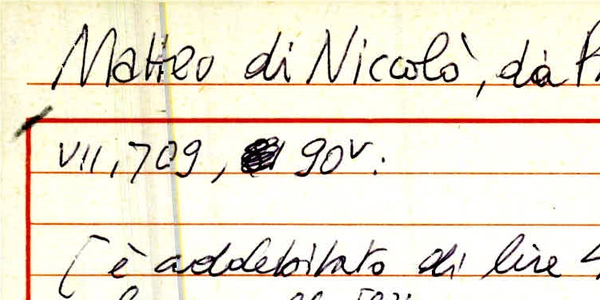 Matteo di Niccolò, da
VII, 709, 90v.
[è addebitato di lire